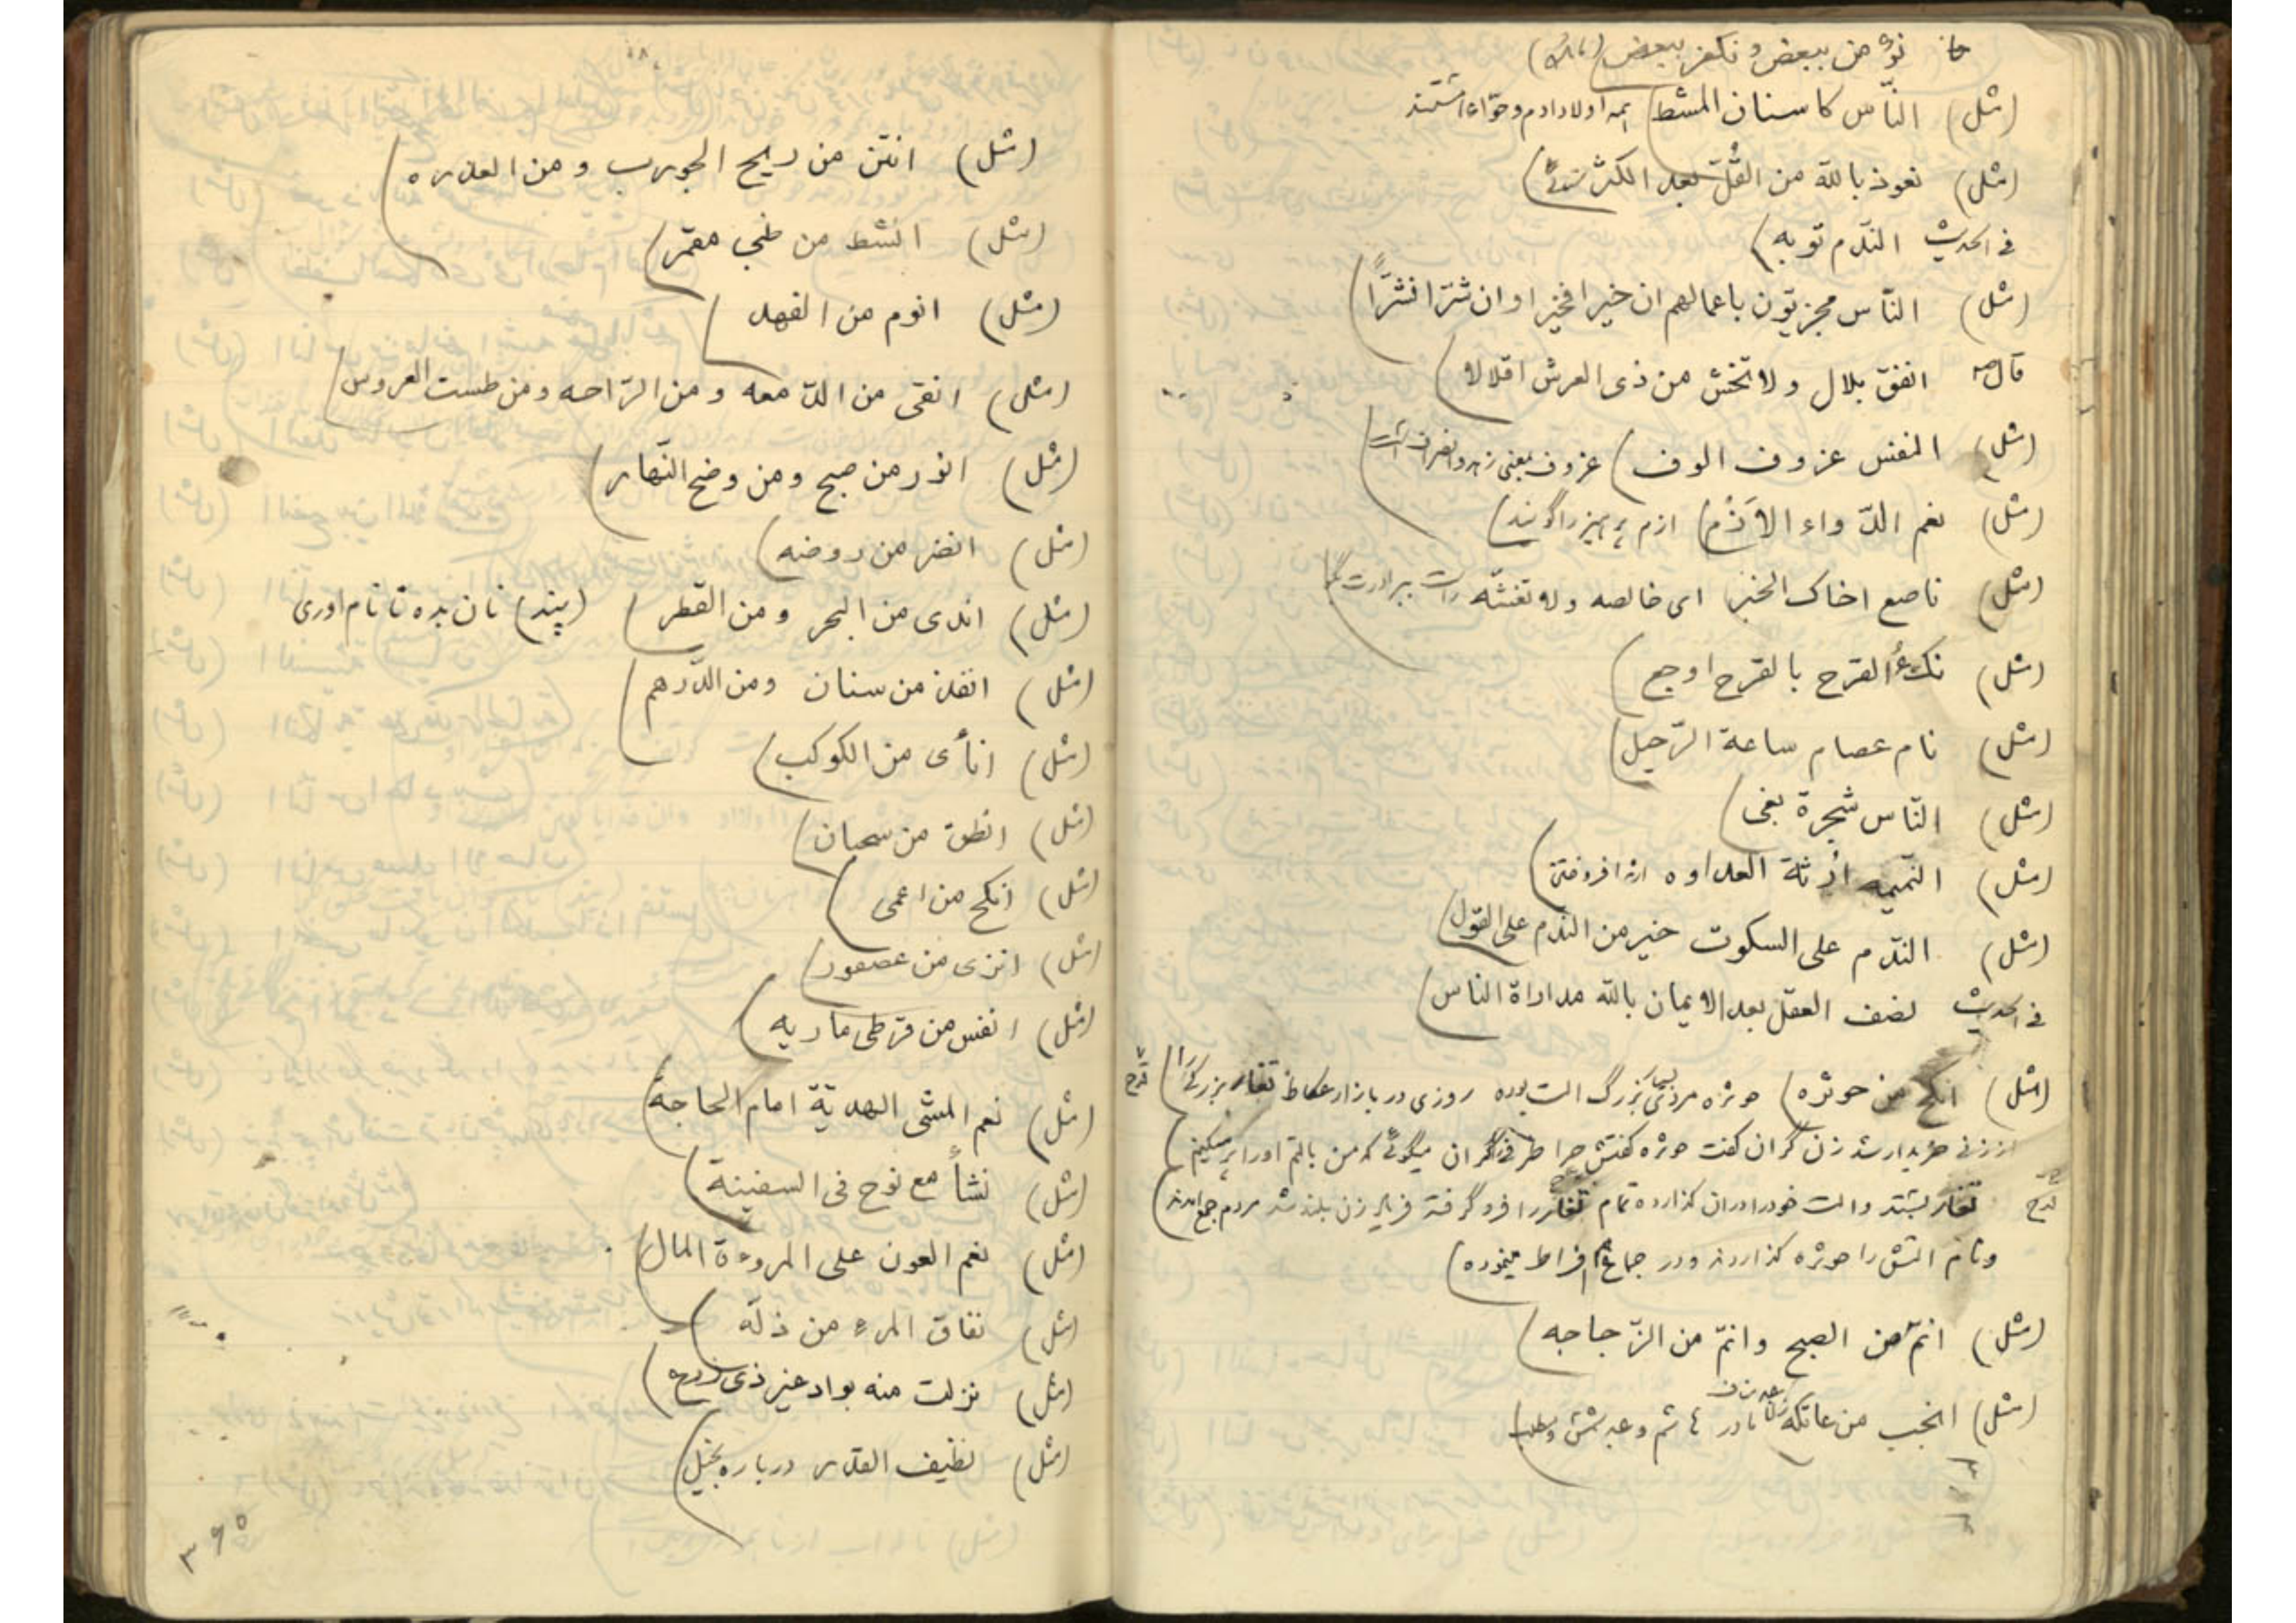 نؤمن ببعض و نکفر ببعض
(مثل) النّاس کاسنان المشط) همه اولاد ادم و حوّاء هستند
(مثل) نعوذ بالله من القُلّ بعد الکثر
فی الحدیث النّدم توبه)
(مثل) النّاس مجزیّون باعمالهم ان خیرا فخیرا و ان شرّا فشرّاً)
قال ص انفق بلال و لا تخش من ذی العرش اقلالا)
(مثل) النفس عزوف الوف) عزوف بمعنی زهد و انصراف است
(مثل) نعم الدّواء الاَزْم) ازم پرهیز را گویند)
(مثل) ناصع اخاک الخبر ای خالصه و لا تغشّه راست ببرادرت بگو
(مثل) نکءُ القرح بالقرح اوجع)
(مثل) نام عصام ساعة الرّحیل)
(مثل) النّاس شجرة بغی)
(مثل) النّمیمه اُرثة العداوه ارث افروختن)
(مثل) النّدم علی السکوت خیر من النّدم علی القول)
فی الحدیث نصف العقل بعد الایمان بالله مداراة الناس)
(مثل) انکح من حوثره) حوثره مردی بسیار بزرگ الت بوده روزی در بازار عکاظ تغار بزرگی را) قدح
از زنی خریدار شد زن گران گفت حوثره گفتش چرا ظرفی گران میگوئی که من بالتم او را پر میکنم)
قدح تغار بستد و الت خود را در ان گذارده تمام تغار را فرو گرفت فریاد زن بلند شد مردم جمع امدند)
و نام التش را حوثره گذاردند و در جماع هم افراط مینموده)
(مثل) انمّ من الصبح و انمّ من الزّجاجه)
(مثل) انجب من عاتکه مادر هاشم و عبد شمس و مطلب)
(مثل) انتن من ریح الجورب و من العذره)
(مثل) انشط من ظبی مقمر)
(مثل) انوم من الفهد)
(مثل) انقی من الدّمعه و من الرّاحه و من طست العروس)
(مثل) انور من صبح و من وضح النّهار)
(مثل) انضر من روضه)
(مثل) اندی من البحر و من القطر) (پند) نان بده تا نام اوری
(مثل) انفذ من سنان و من الدّرهم)
(مثل) انأی من الکوکب)
(مثل) انطق من سحبان)
(مثل) انکح من اعمی)
(مثل) انزی من عصفور)
(مثل) انفس من قرطی ماریه)
(مثل) نعم المشی الهدیّة امام الحاجة)
(مثل) نشأ مع نوح فی السفینة)
(مثل) نعم العون علی المروءة المال)
(مثل) نفاق المرء من ذلّه)
(مثل) نزلت منه بواد غیر ذی زرع)
(مثل) نظیف القدر درباره بخیل)
۳۶۵